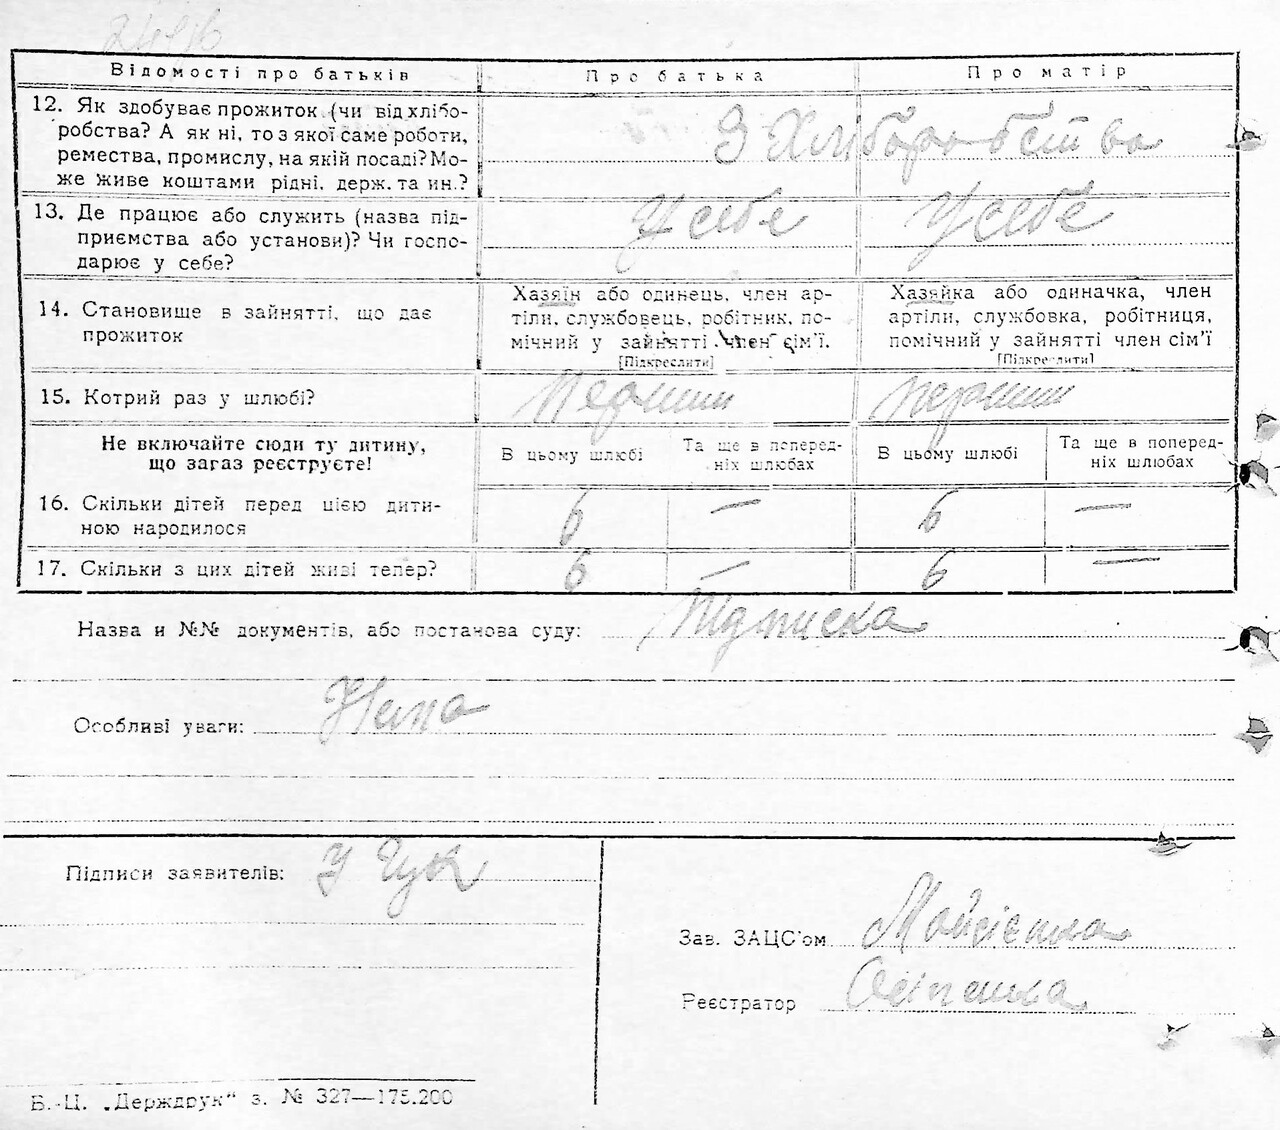 Відомості про батьків Про батька Про матір
12. Як здобуває прожиток (чи від хлібо-
робства? А як ні, то з якої саме роботи,
ремества, промислу, на якій посаді? Мо-
же живе коштами рідні, держ. та ин.?
З Хліборобства
13. Де працює або служить (назва під-
приємства або установи)? Чи госпо-
дарює у себе?
У себе У себе
14. Становище в зайнятті, що дає
прожиток
Хазяїн або одинець, член ар-
тіли, службовець, робітник, по-
мічний у зайнятті член сім'ї.
[Підкреслити]
Хазяйка або одиначка, член
артіли, службовка, робітниця,
помічний у зайнятті член сім'ї
[Підкреслити]
15. Котрий раз у шлюбі? Перший перший
Не включайте сюди ту дитину,
що загаз реєструєте!
В цьому шлюбі
Та ще в поперед-
ніх шлюбах
В цьому шлюбі
Та ще в поперед-
ніх шлюбах
16. Скільки дітей перед цією дити-
ною народилося
6 — 6 —
17. Скільки з цих дітей живі тепер? 6 — 6 —
Назва и №№ документів, або постанова суду: Підписка
Особливі уваги:
Підписи заявителів:
Зав. ЗАЦС'ом
Реєстратор
Б.-Ц. „Держдрук" з. № 327—175.200